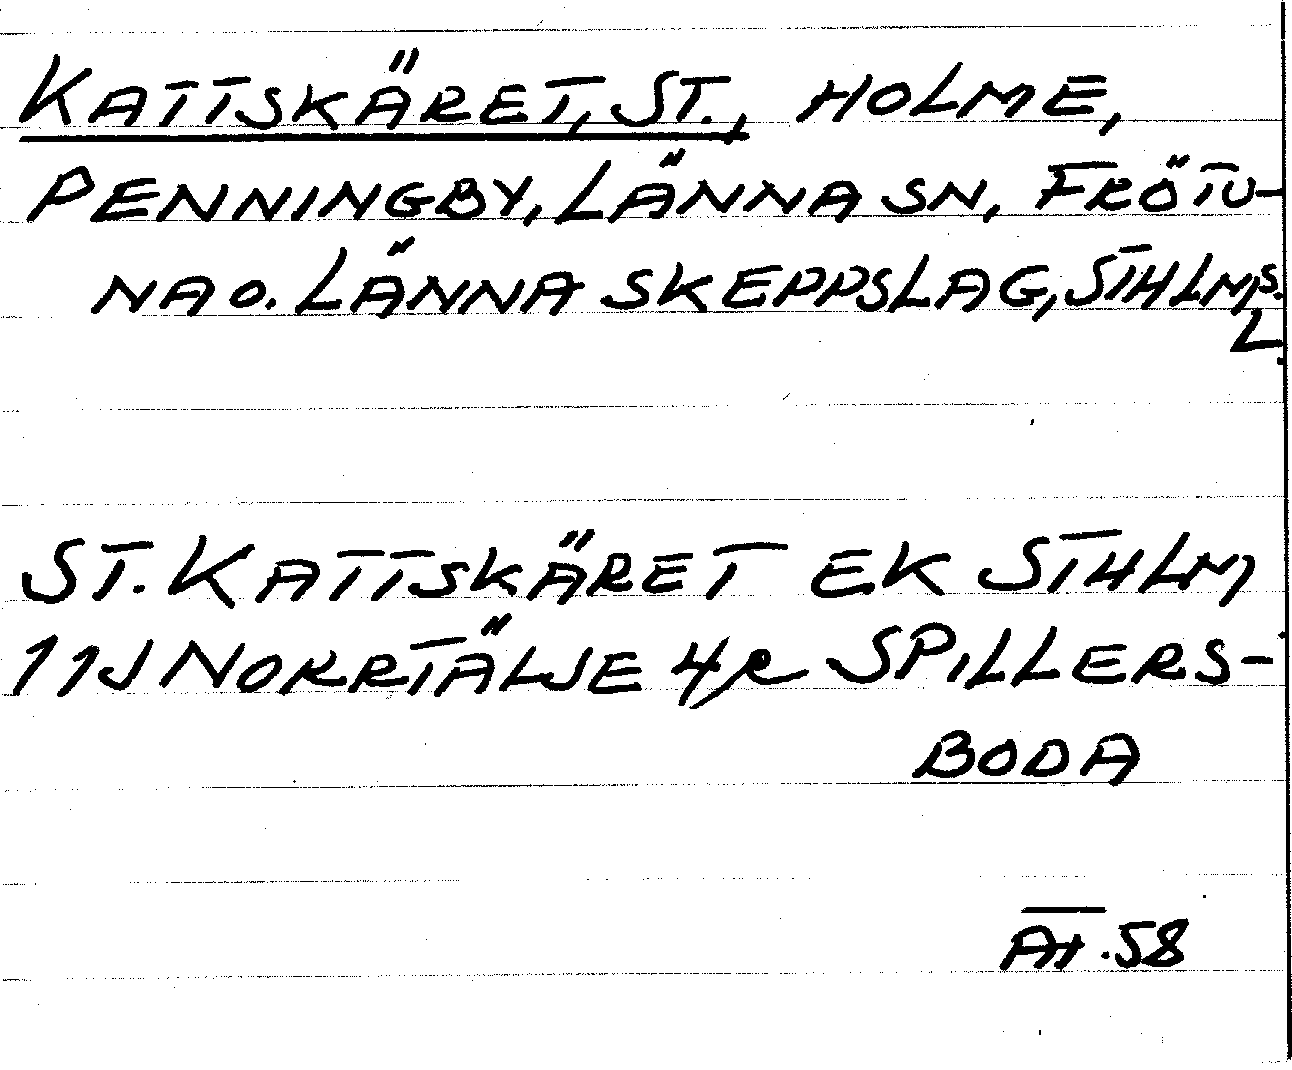 KATTSKÄRET, ST., HOLME,
PENNINGBY, LÄNNA SN, FRÖTU-
NA O. LÄNNA SKEPPSLAG, STHLMS
L.
ST. KATTSKÄRET EK STHLM
11J NORRTÄLJE 4 SPILLERS-
BODA
.58